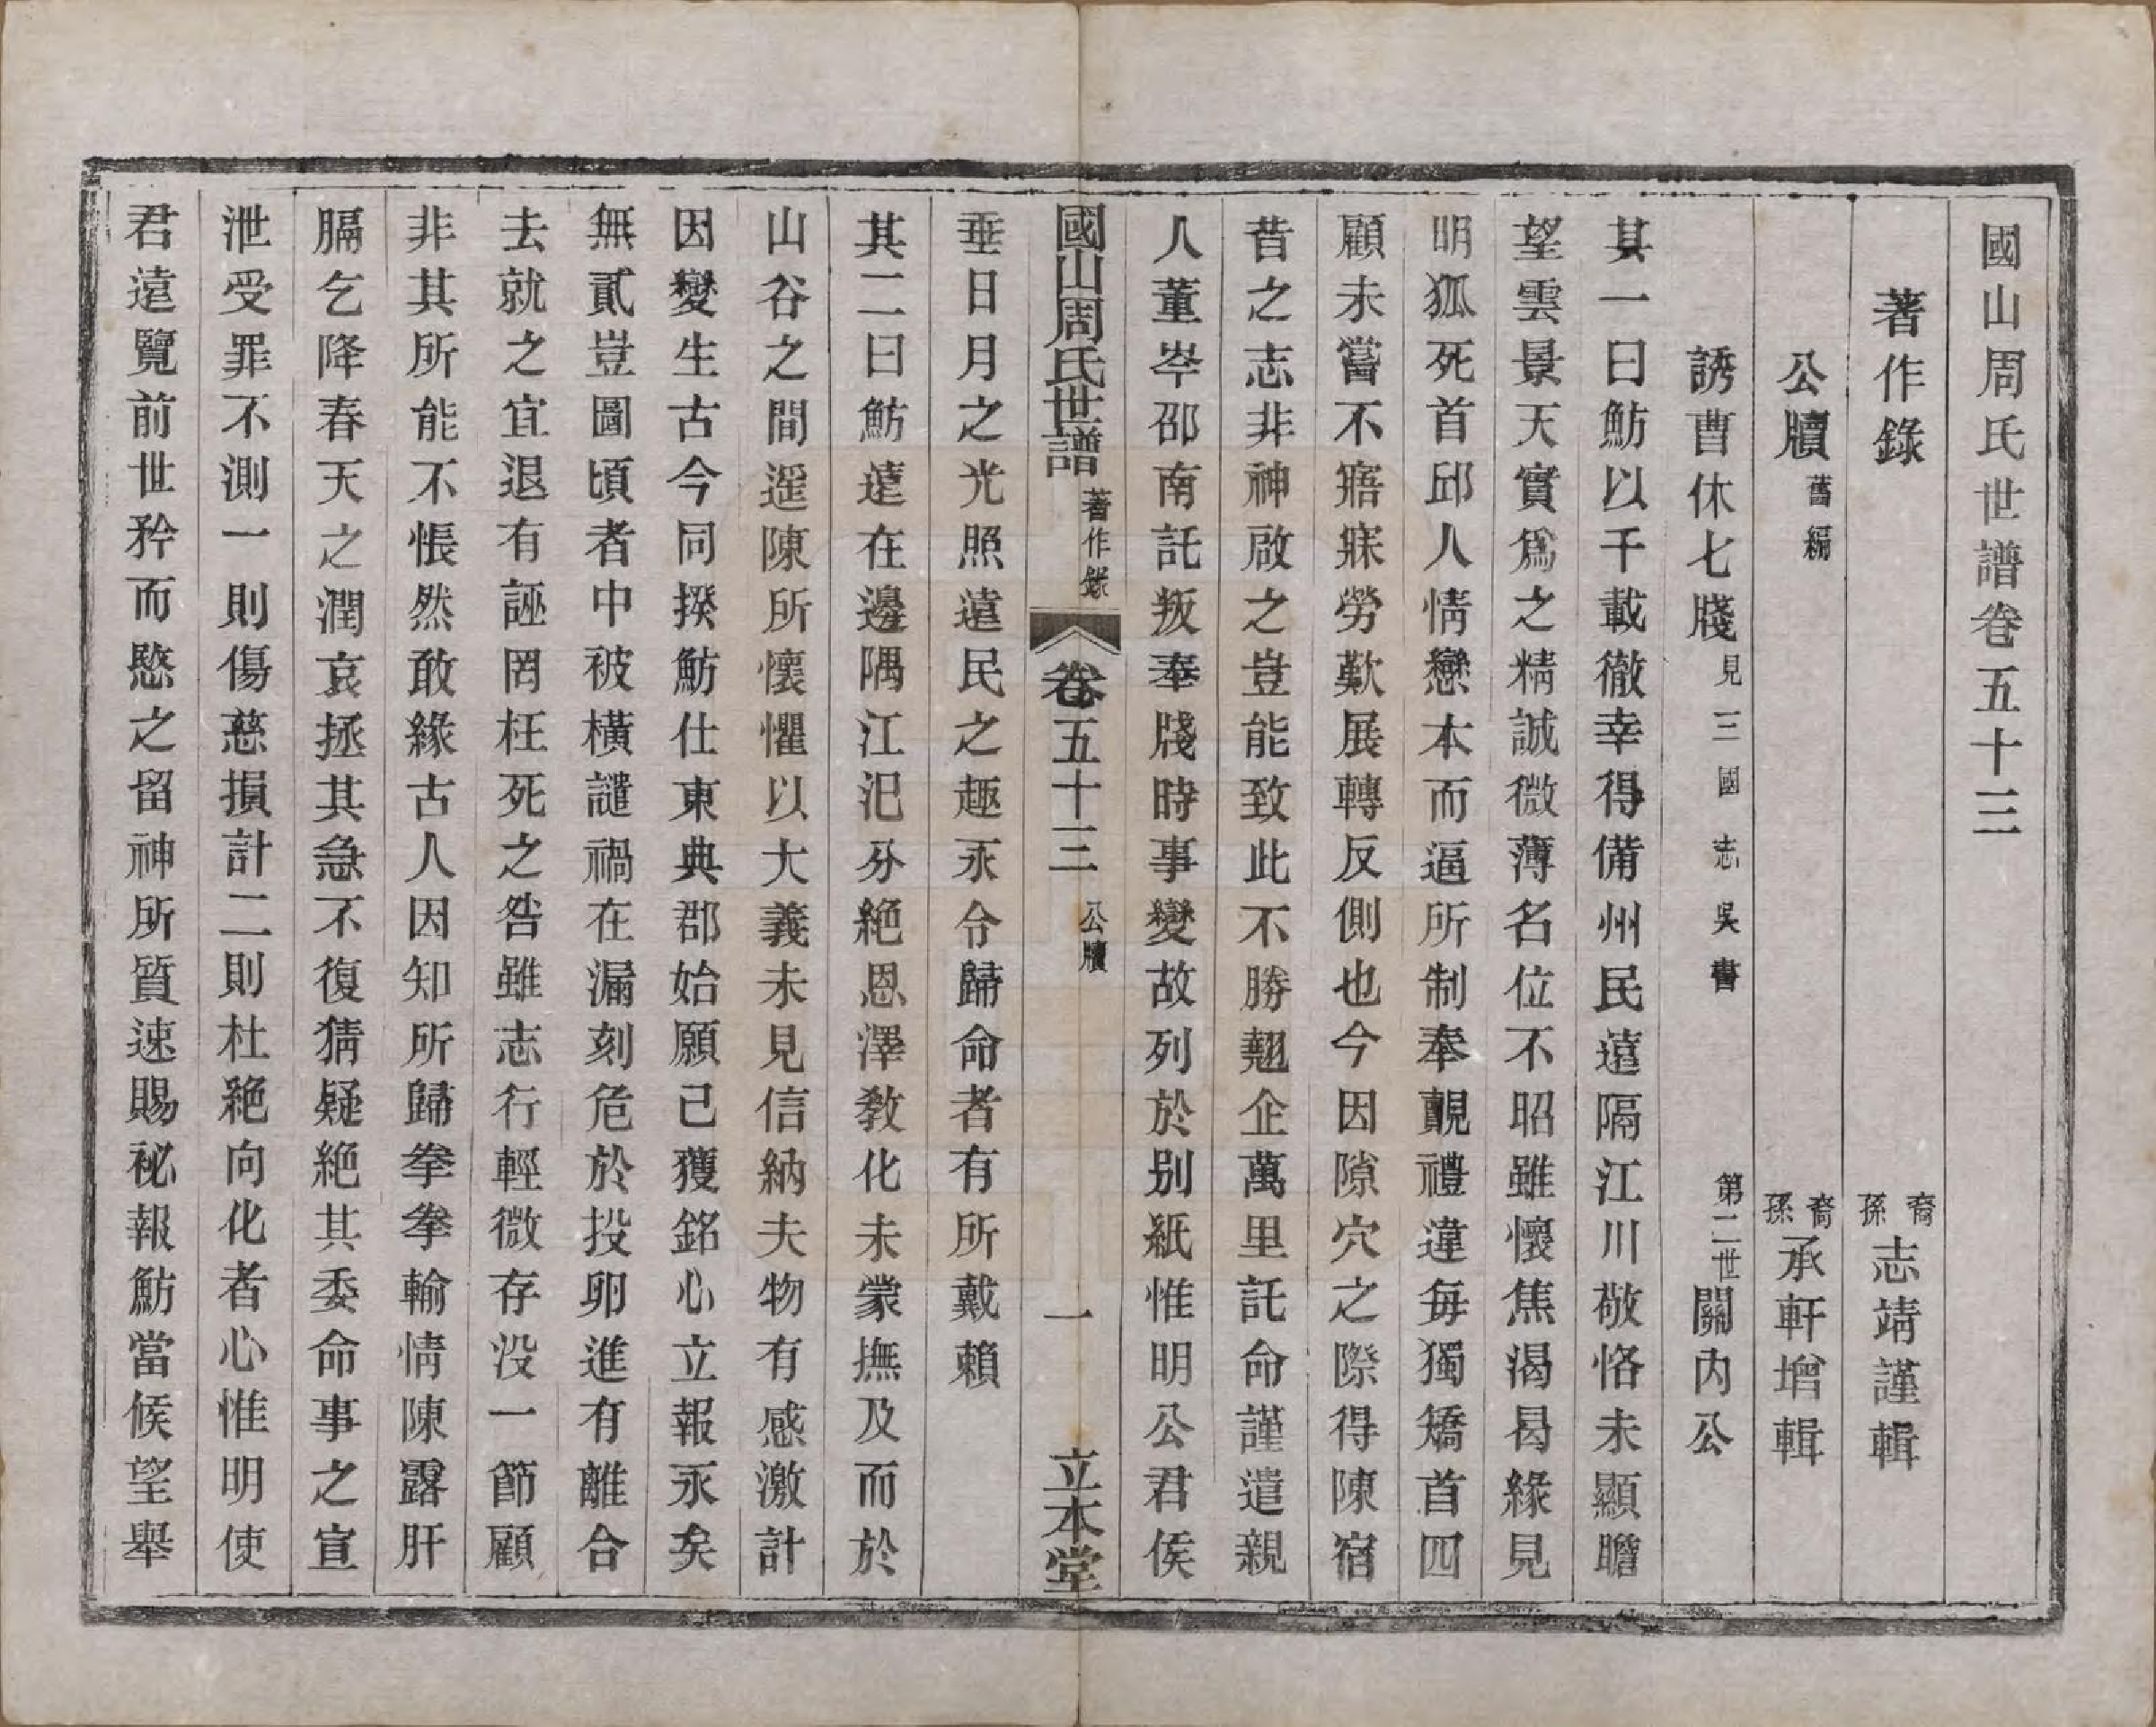 國山周氏世譜卷五十三
著作錄　裔孫志靖謹輯
公牘舊編　裔孫承軒增輯
誘曹休七牋見三國志吳書　第二世關內公
其一曰魴以千載徼幸得備州民遠隔江川敬恪未顯瞻
望雲景天實爲之精誠微薄名位不昭雖懷焦渴曷緣見
明狐死首邱人情戀本而逼所制奉覿禮違每獨矯首四
顧未嘗不寤寐勞歎展轉反側也今因隙穴之際得陳宿
昔之志非神啟之豈能致此不勝翹企萬里託命謹遣親
人董岑邵南託叛奉牋時事變故列於別紙惟明公君侯
國山周氏世譜　著作錄　卷五十三　公牘　一　立本堂
垂日月之光照遠民之趣永令歸命者有所戴賴
其二曰魴遠在邊隅江汜分絕恩澤教化未蒙撫及而於
山谷之間遥陳所懷懼以大義未見信納夫物有感激計
因變生古今同揆魴仕東典郡始願已獲銘心立報永矣
無貳豈圖頃者中被橫譴禍在漏刻危於投卵進有離合
去就之宜退有誣罔枉死之咎雖志行輕微存没一節顧
非其所能不悵然敢緣古人因知所歸拳拳輸情陳露肝
膈乞降春天之潤哀拯其急不復猜疑絕其委命事之宣
泄受罪不測一則傷慈損計二則杜絕向化者心惟明使
君遠覽前世矜而愍之留神所質速賜祕報魴當候望舉